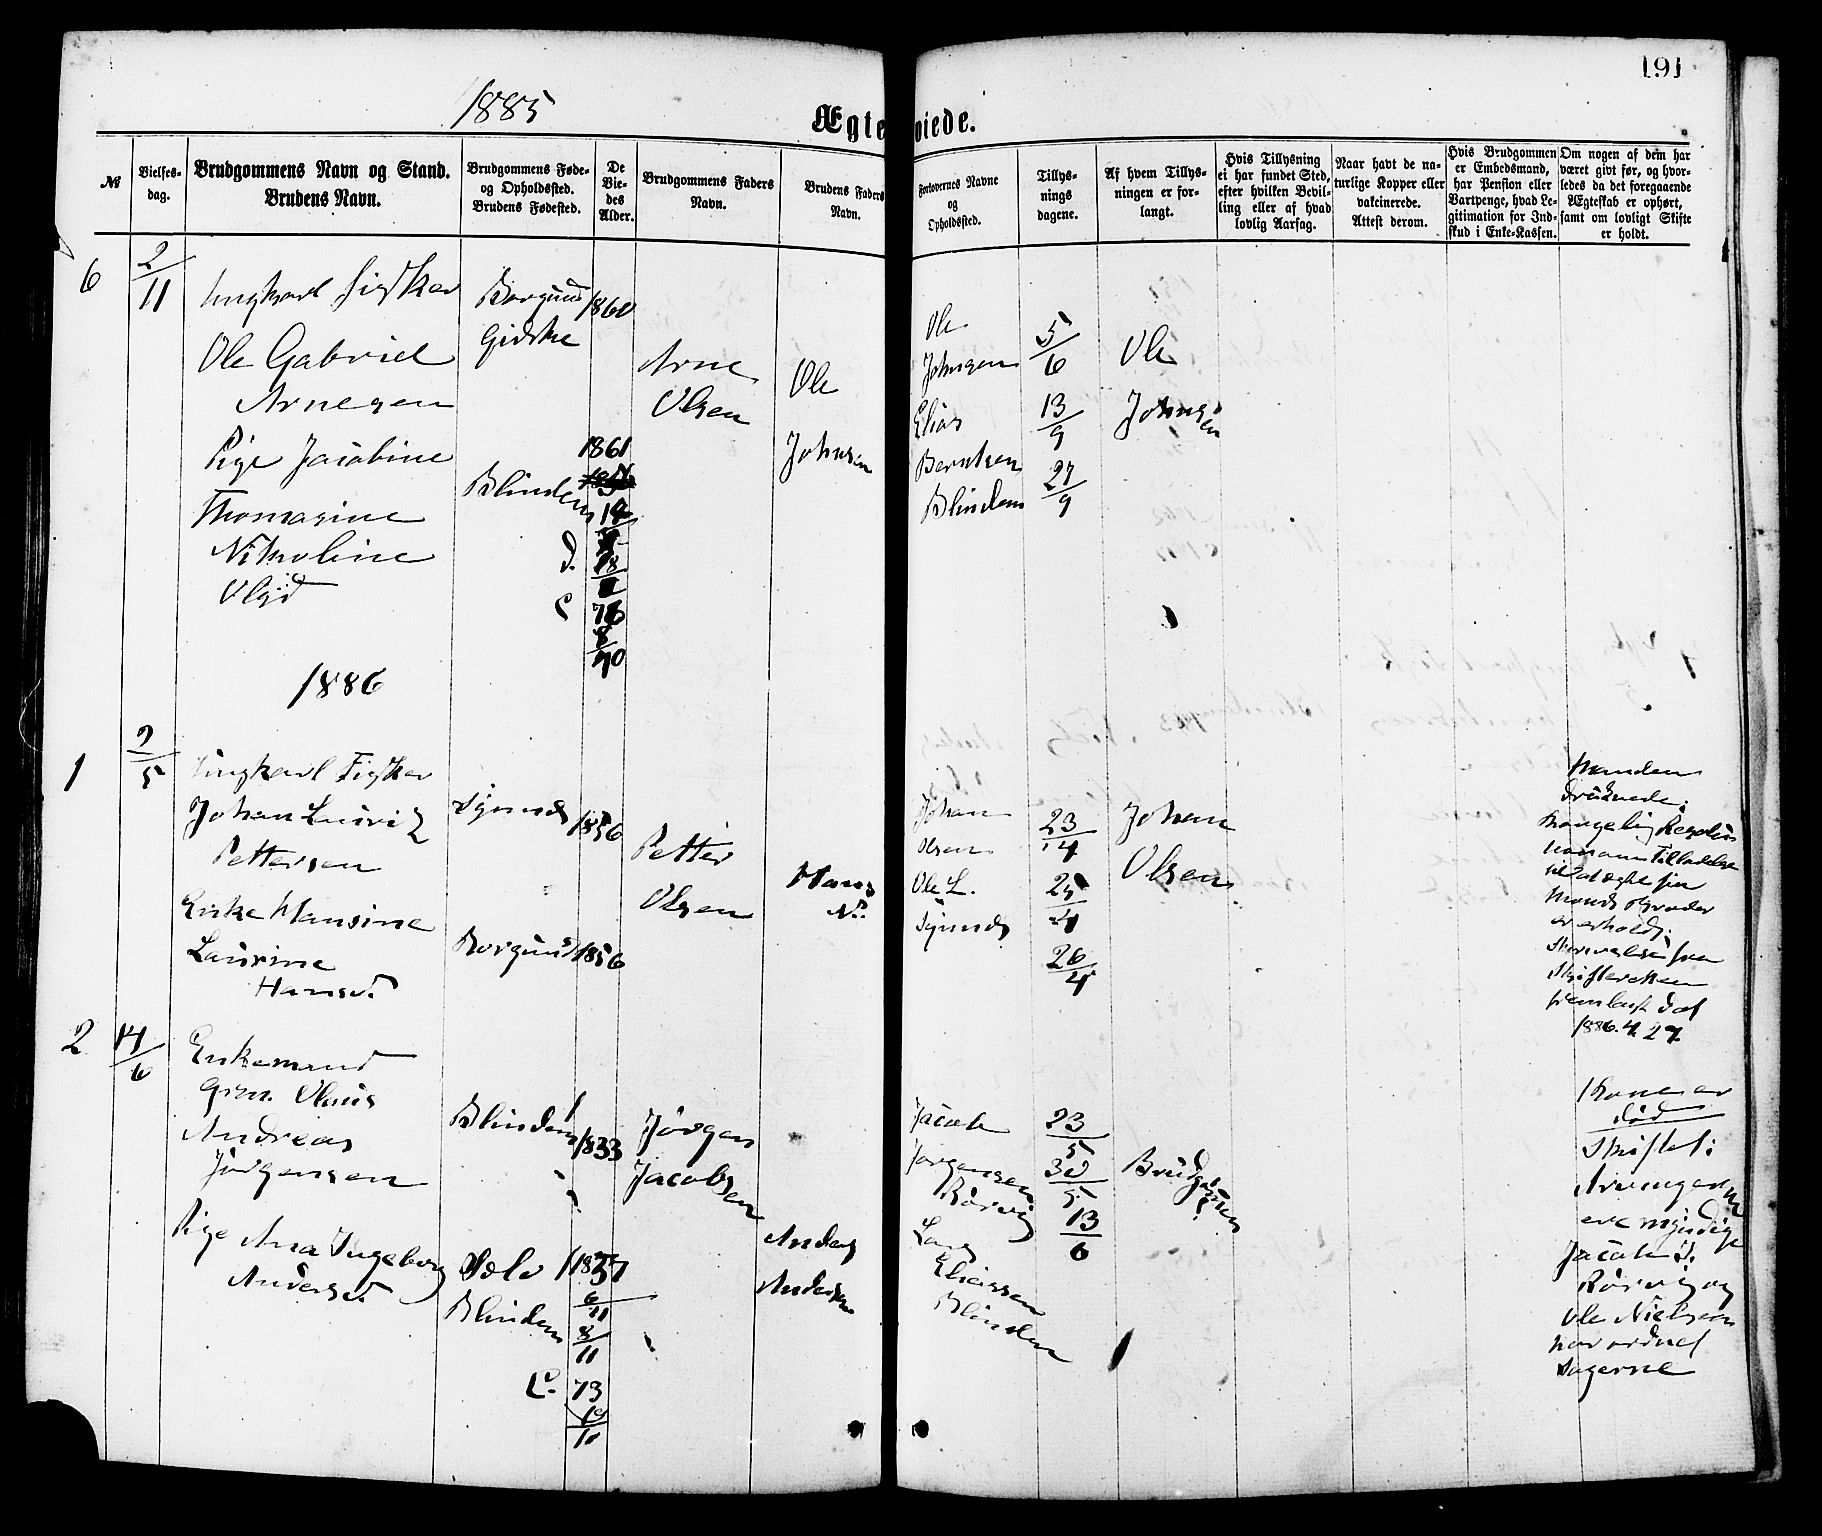 191
1885
Ægteviede.
№
Vielses-
dag.
Brudgommens Navn og Stand.
Brudens Navn.
Brudgommens Føde-
og Opholdssted.
Brudens Fødested.
De
Vie-
des
Alder.
Brudgommens Faders
Navn.
Brudens Faders
Navn.
Forlovernes Navne
og
Opholdssted.
Tillys-
nings
dagene.
Af hvem Tillys-
ningen er for-
langt.
Hvis Tillysning
ei har fundet Sted,
efter hvilken Bevil-
ling eller af hvad
lovlig Aarsag.
Naar havt de na-
turlige Kopper eller
vakcinerede.
Attest derom.
Hvis Brudgommen
er Embedsmand,
har Pension eller
Vartpenge, hvad Le-
gitimation for Ind-
skud i Enke-Kassen.
Om nogen af dem har
været givt før, og hvor-
ledes da det foregaaende
Ægteskab er ophørt,
samt om lovligt Skifte
er holdt.
6
2/11
Ungkarl Fisker
Ole Gabriel
Arnesen
Pige Jacobine
Thomasine
Nikoline
Olsd
Borgund
Giske
Blindem
d.
C
1860
1861
76
Arne
Olsen
Ole
Johnsen
Ole
Johnsen
Elias
Berntsen
Blindem
5/6
13/9
27/9
Ole
Johnsen
1886
1
2/5
Ungkarl Fisker
Johan Lauritz
Pettersen
Enke Hansine
Laurine
Hansd.
Synnes
Borgund
1856
1856
Petter
Olsen
Hans
N.
Johan
Olsen
Ole L.
Synnes
23/4
25/4
26/4
Johan
Olsen
Manden
druknede;
Kongelig Resolution
Tilladelse
til at ægte sin
Mands Broder
er erholdt;
Skrivelse fra
Skifteretten
fremlagt dat
1886.4.27.
2
14/6
Enkemand
Grm. Olaus
Andreas
Jørgensen
Pige Ana Ingeborg
Andersd.
Blindem
Blindem
C.
1833
1837
6/11
8/11
73
19/11
Jørgen
Jacobsen
Anders
Andersen
Jacob
Jørgensen
Rørvig
Lars
Eliassen
Blindem
23/5
30/5
13/6
Brudgommen
Kone er
død
Skiftet:
Arvingerne
ere myndige
Jacob J.
Rørvig og
Ole Nielsen
har ordnet
Sagerne